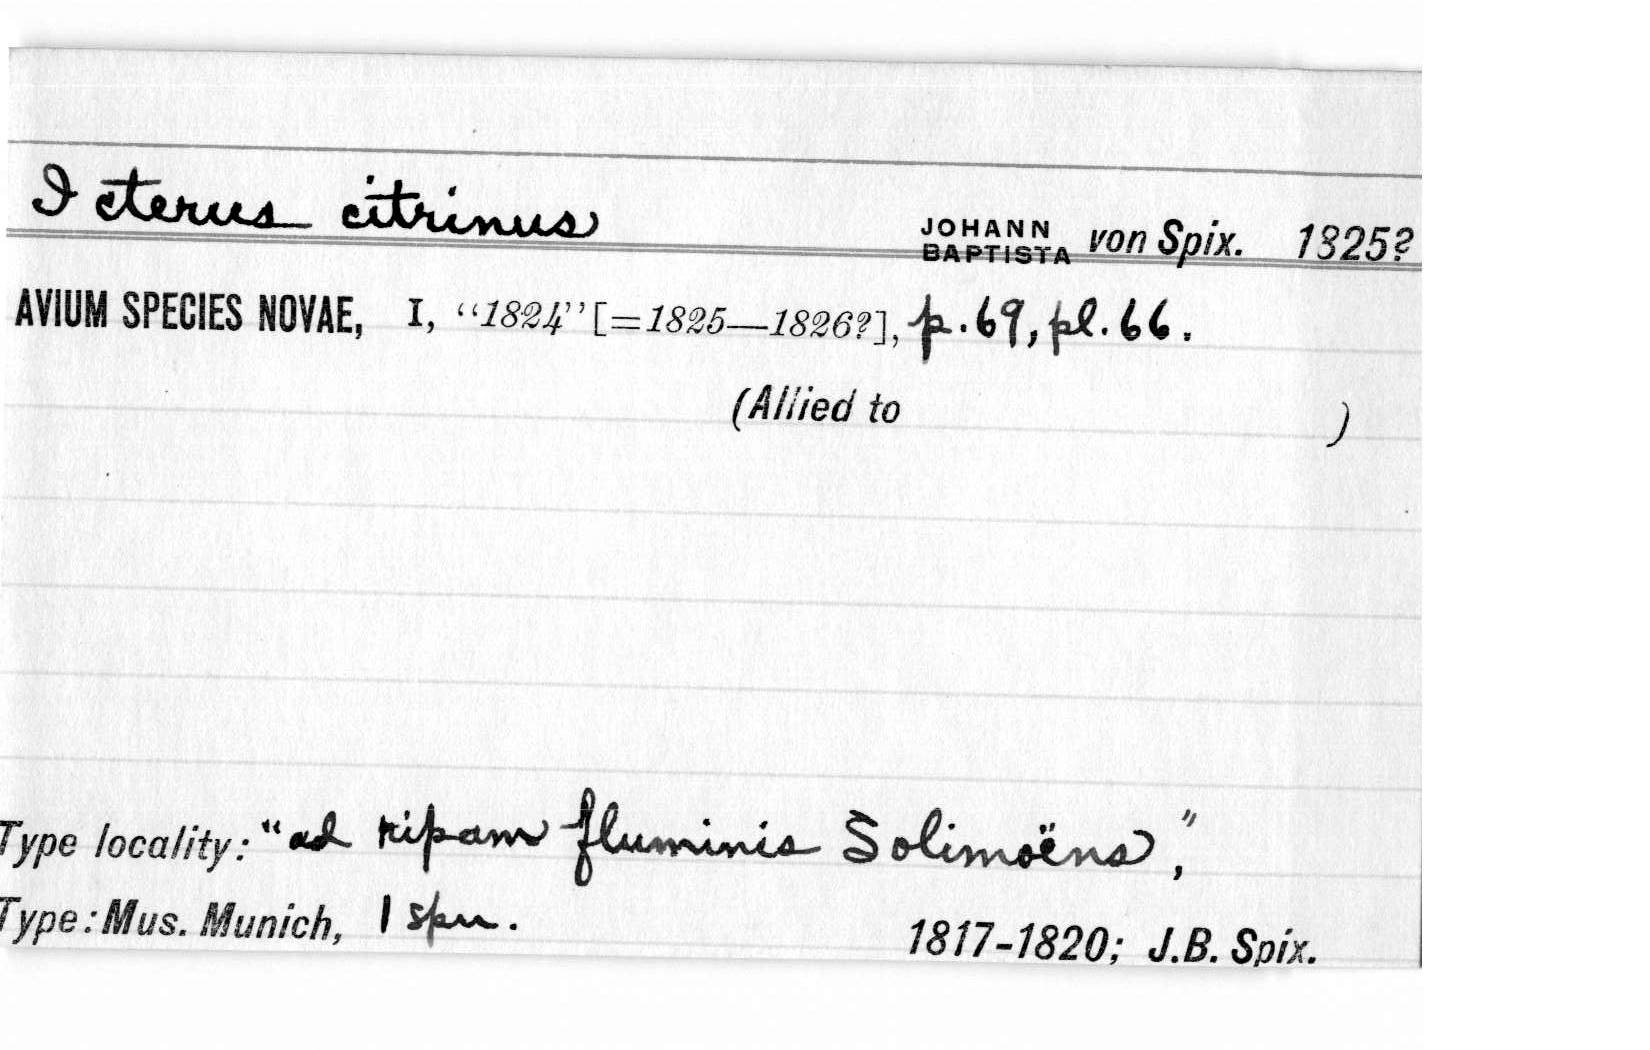 Icterus citrinus JOHANN BAPTISTA von Spix. 1825?
AVIUM SPECIES NOVAE, I, “1824” [=1825—1826?], p. 69, pl. 66.
(Allied to )
Type locality: “ad ripam fluminis Solimoëns,”
Type: Mus. Munich, 1 spm. 1817-1820; J.B. Spix.